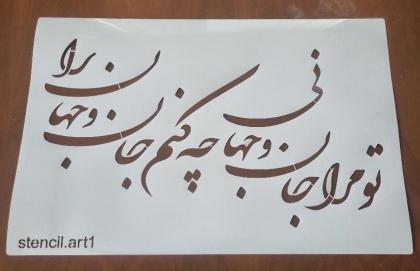 تو مرا جان و جهانی چه کنم جان و جهان را
stencil.art1